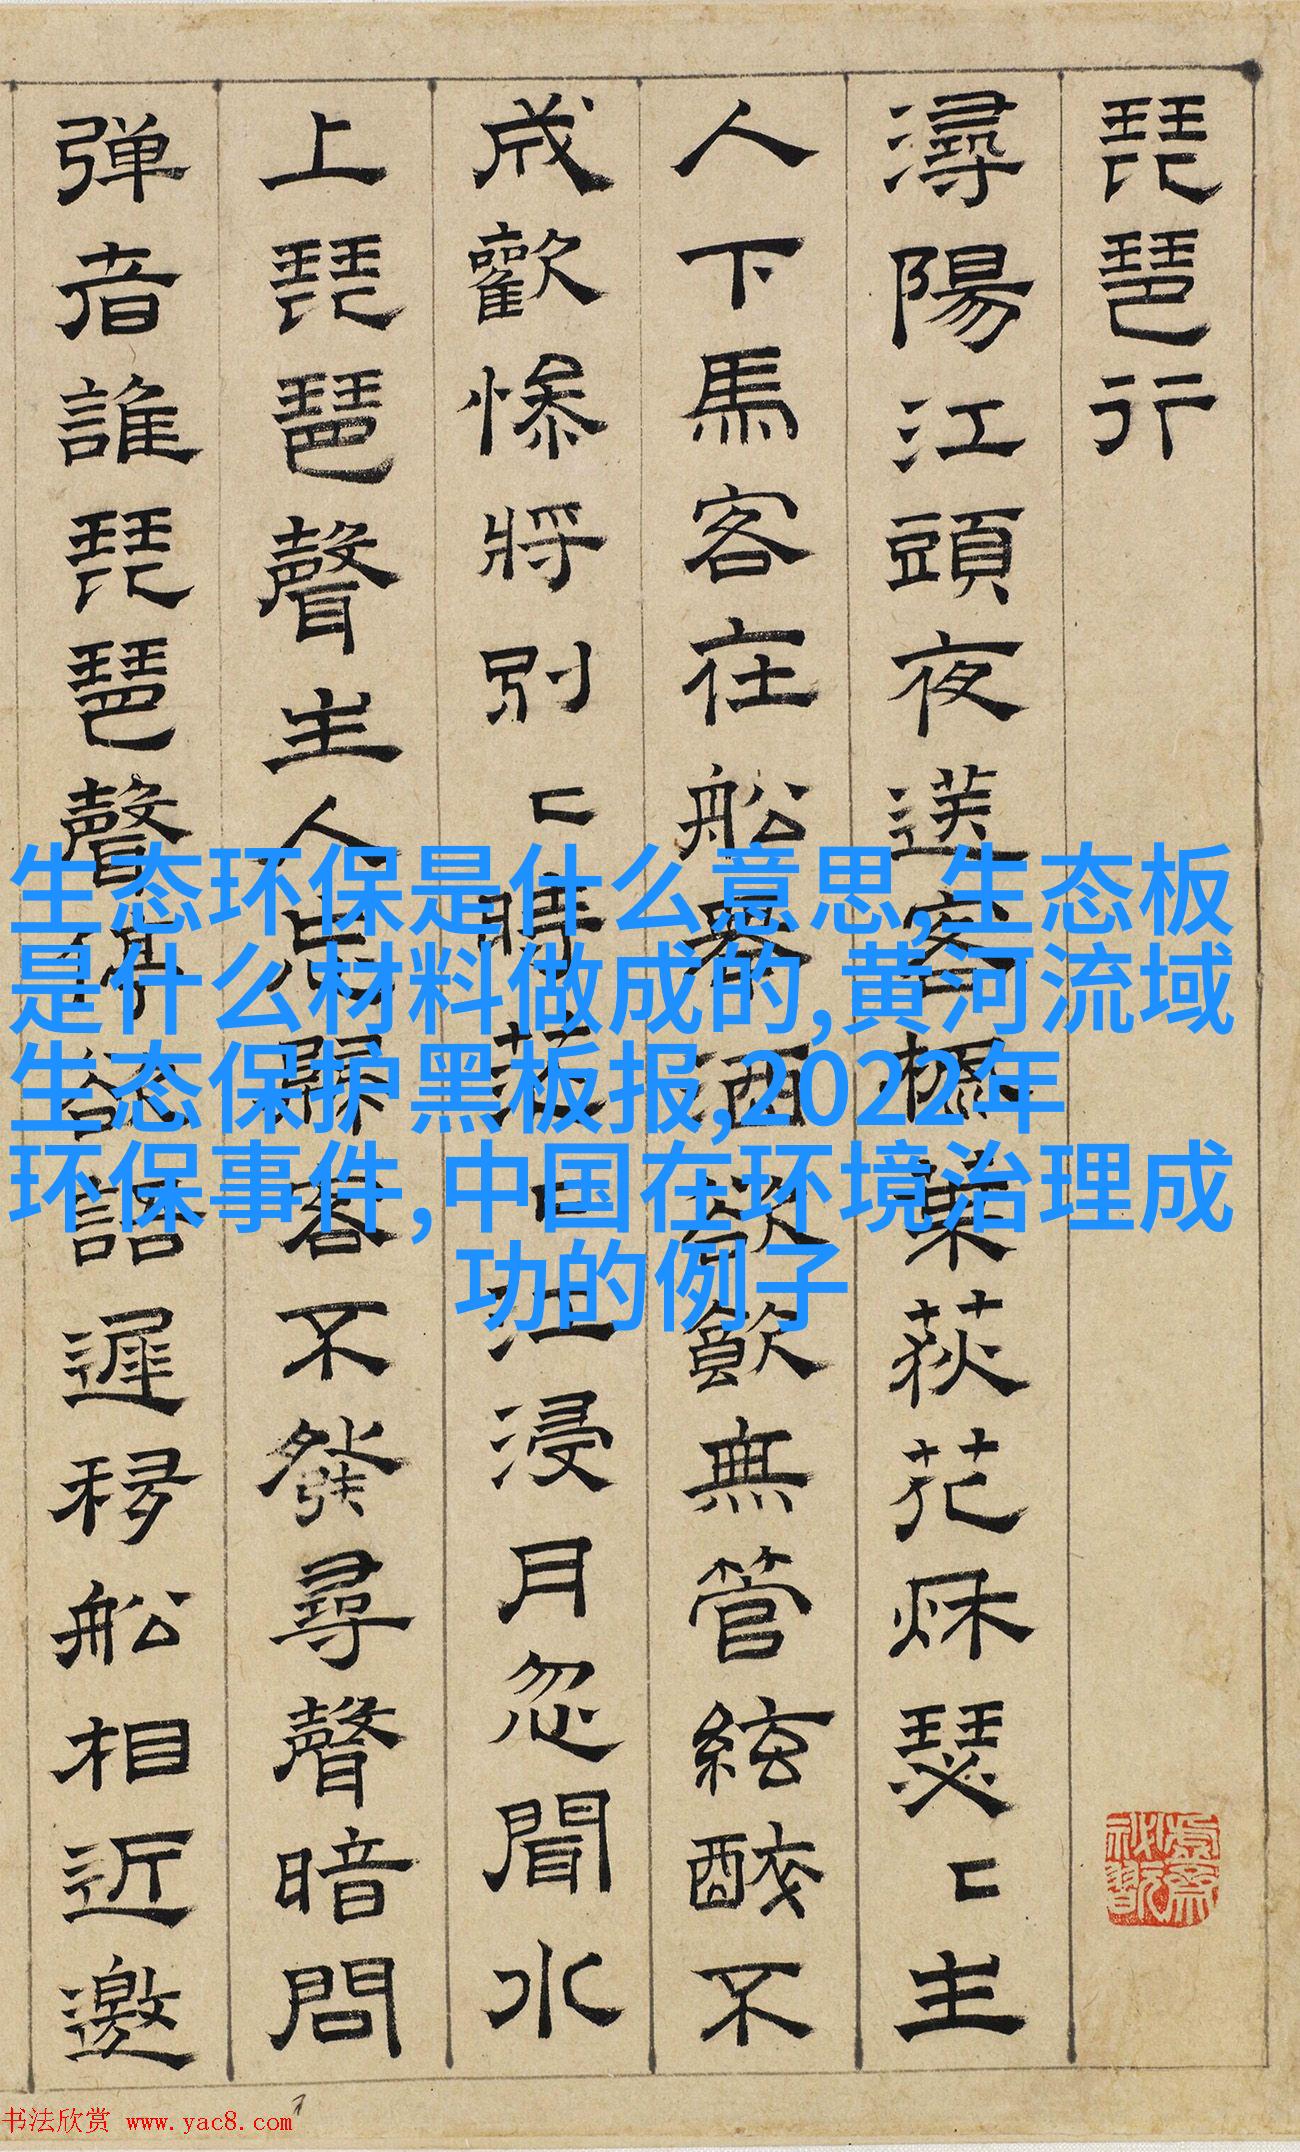 琵琶行
潯陽江頭夜送客楓葉荻花秋瑟〻主
人下馬客在船舉酒欲飲無管絃醉不
成歡慘將別〻時茫〻江浸月忽聞水
上琵琶聲主人忘歸客不發尋聲暗問
弹者誰琵琶聲停欲語遲移船相近邀
生态环保是什么意思,生态板
是什么材料做成的,黄河流域
生态保护黑板报,2022年
环保事件,中国在环境治理成
功的例子
书法欣赏 www.yac8.com